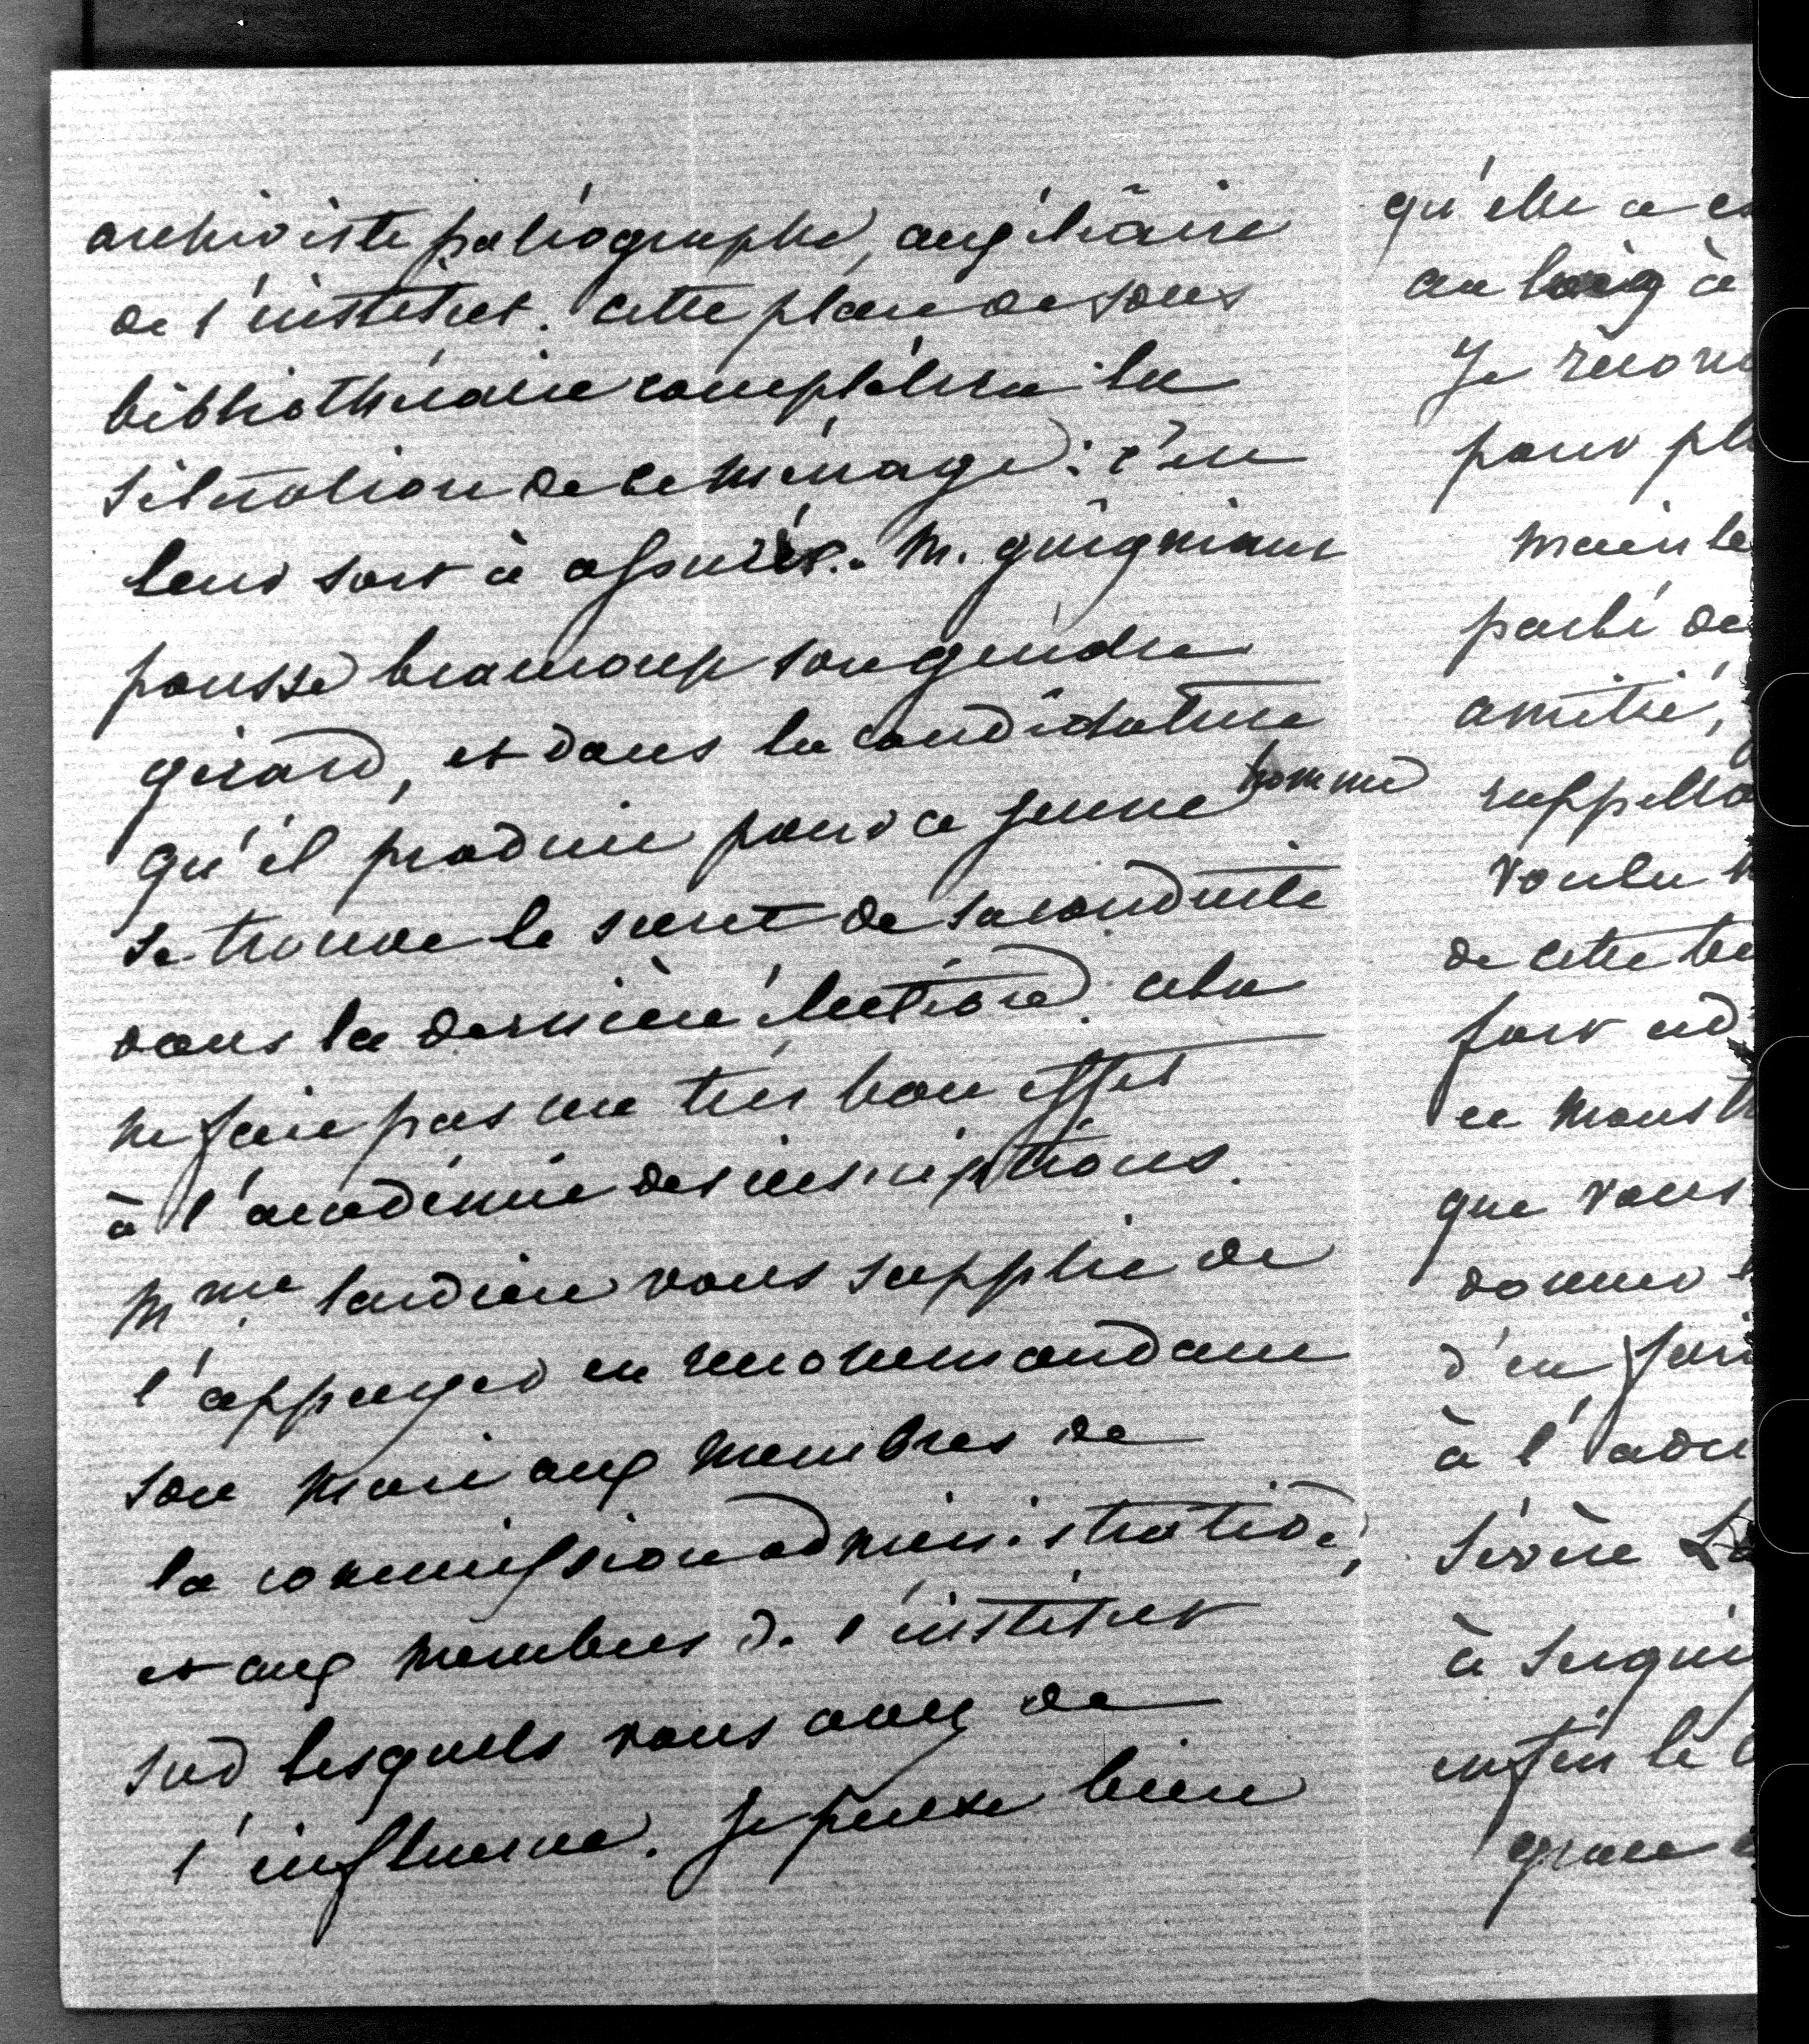 archiviste paléographe, auxiliaire
de l'institut. cette place de sous
bibliothécaire complétera la
situation de ce ménage : c'en
leur sort à assurer. M. guigniaut
pousse beaucoup son gendre
girard, et dans la candidature
qu'il produit pour ce jeune homme
se trouve le secret de sa conduite
dans la dernière élection. cela
ne fait pas un très bon effet
à l'académie des inscriptions.
Mme. tardieu vous supplie de
l'appuyer en recommandant
son mari aux membres de
la commission administrative,
et aux membres de l'institut
sur lesquels vous avez de
l'influence. Je pense bien
qu'elle a
au
Je
pour
parlé de
amitié,
voulu
de cette
fort
ce
que vous
donner
d'en
à l'
sévère
à
enfin le
grace